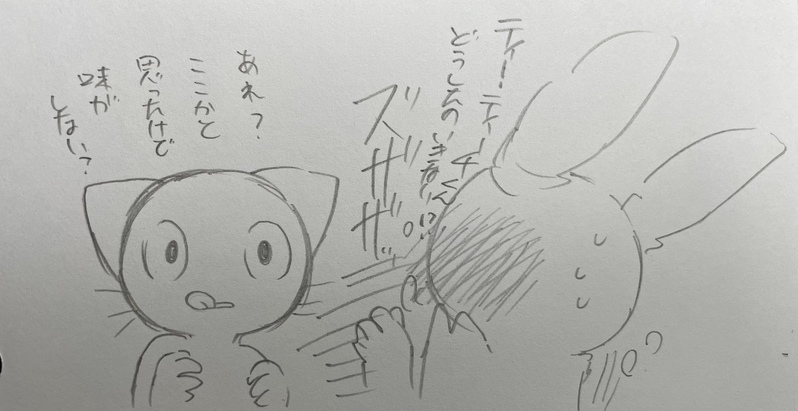 ティーティーチくん
どうしたのいきなり!?
ズザザザ
あれ?
ここかと
思ったけど
味が
しない?